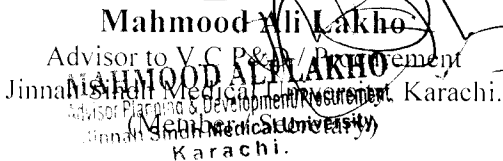 Mahmood Ali Lakho
Advisor to V.C P&D / Procurement
Jinnah Sindh Medical University, Karachi.
(Member / Secretary)
MAHMOOD ALI LAKHO
Advisor Planning & Development/Procurement,
Jinnah Sindh Medical University,
Karachi.